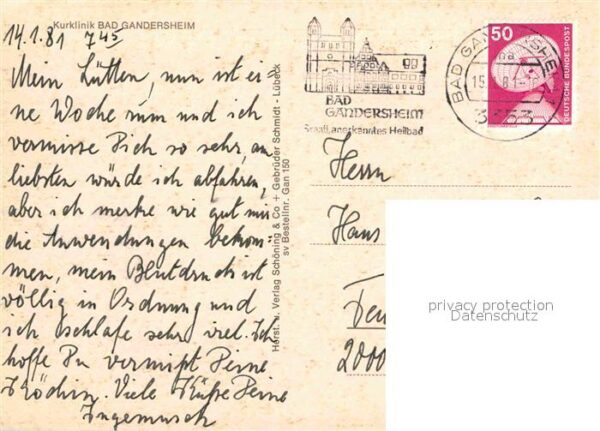 Kurklinik BAD GANDERSHEIM
14.1.81 7 45
Mein Lütten, nun ist ei
ne Woche rum und ich
vermisse Dich so sehr, am
liebsten würde ich abfahren,
aber ich merke wie gut mir
die Anwendungen bekom-
men, mein Blutdruck ist
völlig in Ordnung und
ich schlafe sehr viel. Ich
hoffe Du vermißt Deine
Köchin. Viele Küsse Deine
Horst. u. Verlag Schöning & Co + Gebrüder Schmidt - Lübeck
sv Bestellnr. Gan 150
BAD
GANDERSHEIM
Staatl. anerkanntes Heilbad
BAD GANDERSHEIM
3353
50
DEUTSCHE BUNDESPOST
Herrn
Hans
2000
privacy protection
Datenschutz